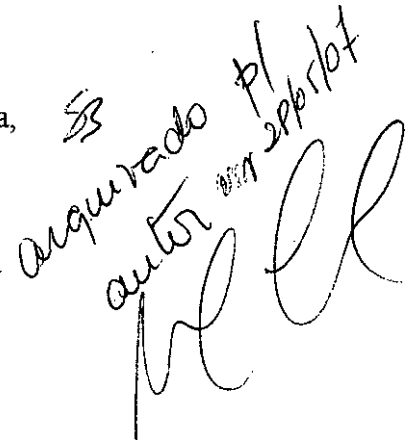 a,
arquivado p/
autor em 28/05/07